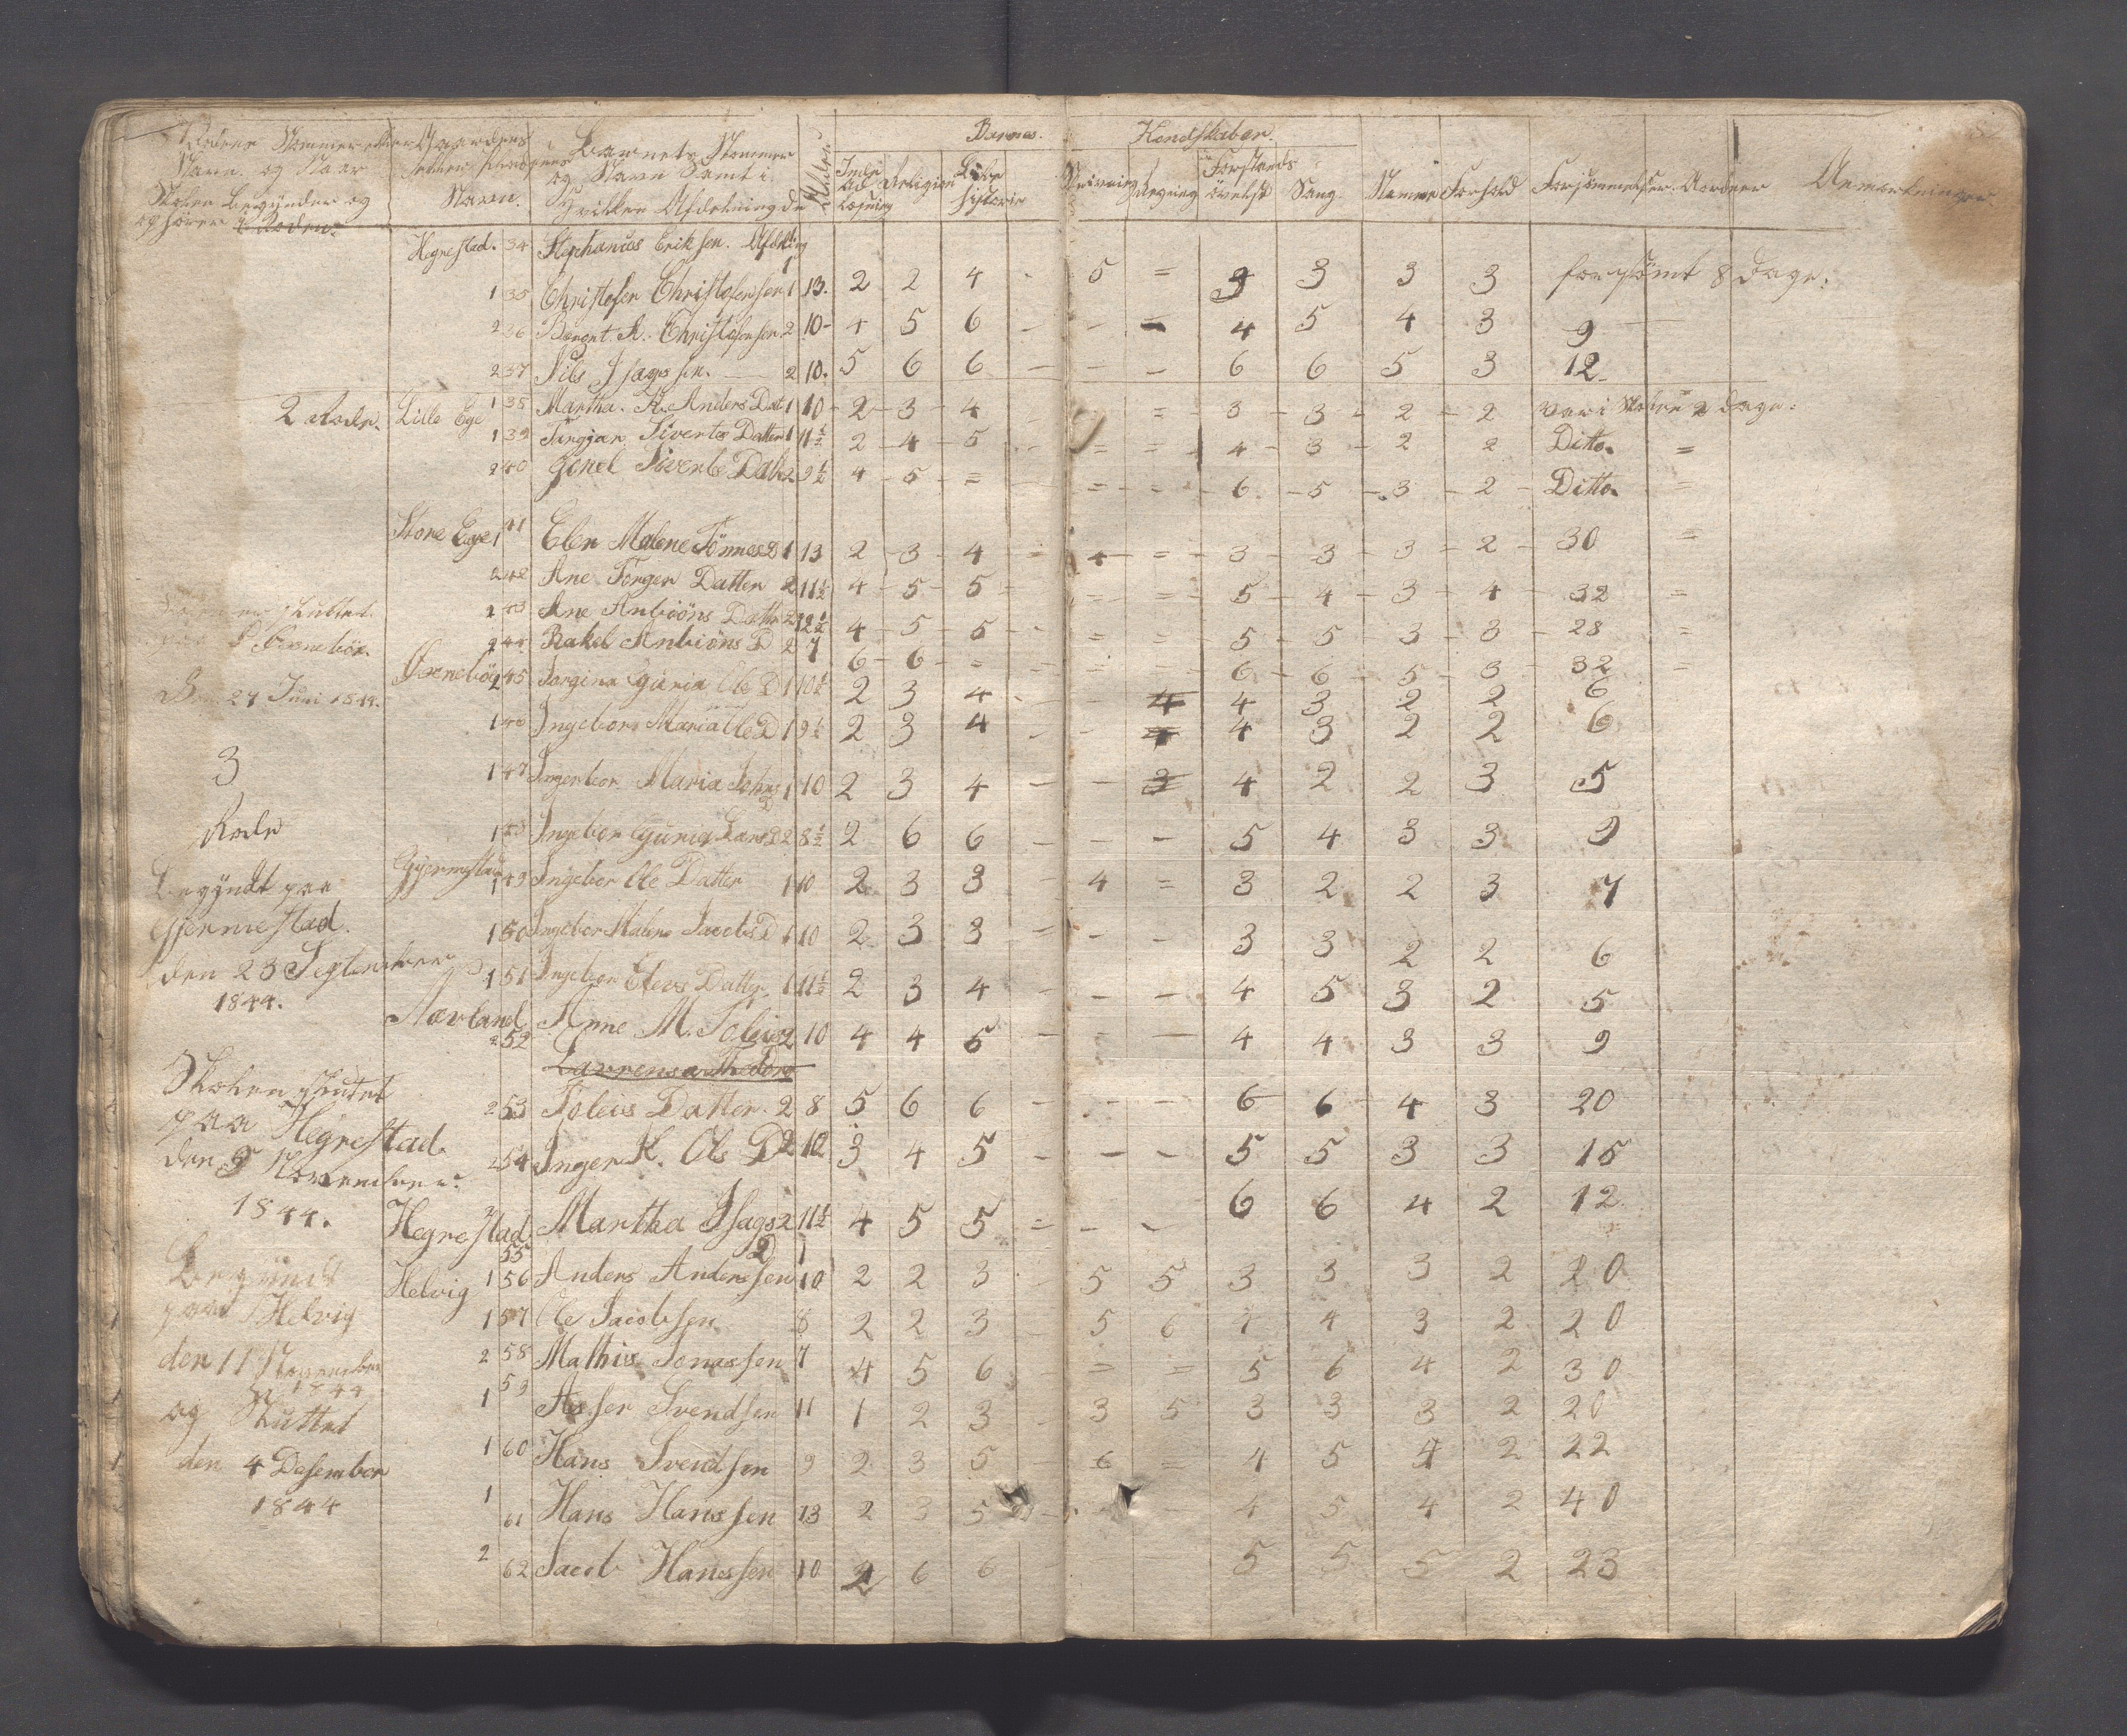 Barnes Kundskaber
Navn. og
Skolen begynder og
ophører i Roden.
Navn.
Barnets Nommer
og Navn Samt i
Religion
Sang Nemme Forhold Forsømmelser Anmærkninger
Hegrestad. 34 Stephanus Eriksen. 1
1 35 Christofer Christofersen 1 13. 2 2 4 - 5 = 3 3 3 3 forsømt 8 Dage.
2 36 Berent A. Christofersen 2 10 4 5 6 - - - 4 5 4 3 9
2 37 Nils Isagssen. 2 10. 5 6 6 - - - 6 6 5 3 12
2 Rode. Lille Ege 1 38 Martha. K. Anders Dat 1 10 2 3 4 = 3 3 2 2 var i Skolen 2 Dage.
1 39 Siverts Datter 1 11½ 2 4 5 = = 4 3 2 2 Ditto. =
2 40 Gonel Siverts Dat 2 9½ 4 5 = = - 6 5 3 2 Ditto.
Store Ege 1 41 Elen Malene Tönnes D 1 13 2 3 4 = 4 = 3 3 3 2 30 =
2 42 Ane Torger Datter 2 11½ 4 5 5 = = = 5 4 3 4 32 =
2 43 Ane Anbiöns Datter 2 12½ 4 5 5 - = - 5 5 3 3 28 =
2 44 Rakel Anbiöns D 2 7 6 6 = = = - 6 6 5 3 32 =
Den 24 Juni 1844.
45 Guria Ole D 1 10½ 2 3 4 - - 4 4 3 2 2 6
1 46 Ingebor Maria Ole D 1 9½ 2 3 4 - - 4 4 3 2 2 6
3
Rode
1 47 Ingerbor Maria Johns D 1 10 2 3 4 - - 3 4 2 2 3 5
1 48 Ingebor Guria Lars D 2 8½ 2 6 6 - - - 5 4 3 3 9
begyndt paa
Gjermestad.
den 23 September
1844.
1 49 Ingebor Ole Datter 1 10 2 3 3 - 4 = 3 2 2 3 7
1 50 Ingebor Malene Jacobs D 1 10 2 3 3 = - - 3 3 2 2 6
1 51 Ingebor Elevs Datter 1 11½ 2 3 4 - - - 4 5 3 2 5
Aarland 2 52 Anne M. Toleivs 2 10 4 4 5 - - - 4 4 3 3 9
Lavrensa Thedora
Skolen sluttet
paa Hegrestad
den 9 November
1844.
2 53 Toleivs Datter. 2 8 5 6 6 - - - 6 6 4 3 20
2 54 Inger K. Ols D 2 12 3 4 5 - - - 5 5 3 3 15
Hegrestad 55 Martha Isags D 2 11½ 4 5 5 = - - 6 6 4 2 12
Begyndt
paa Helvig
den 11 November
1844
og Sluttet
den 4 Desember
1844
Helvig 1 56 Anders Anderssen 10 2 2 3 - 5 5 3 3 3 2 20
1 57 Ole Jacobsen 8 2 2 3 - 5 6 4 4 3 2 20
2 58 Mathis Jonassen 7 4 5 6 = = 5 6 4 2 30
1 59 Asser Svendsen 11 1 2 3 - 3 5 3 3 3 2 20
1 60 Hans Svendsen 9 2 3 5 6 = 4 5 4 2 22
1 61 Hans Hanssen 13 2 3 5 4 5 4 2 40
2 62 Jacob Hanssen 10 4 6 6 5 5 5 2 23